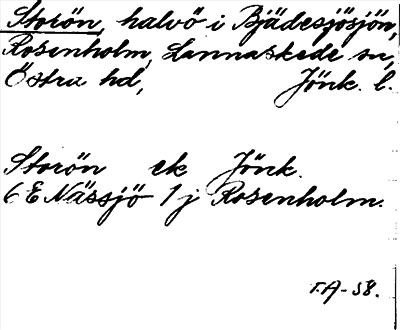 Storön, halvö i Bjädesjösjön,
Rosenholm, Lannaskede sn,
Östra hd, Jönk. l.
Storön ek Jönk.
6 E Nässjö 1 j Rosenholm.
T.A-58.